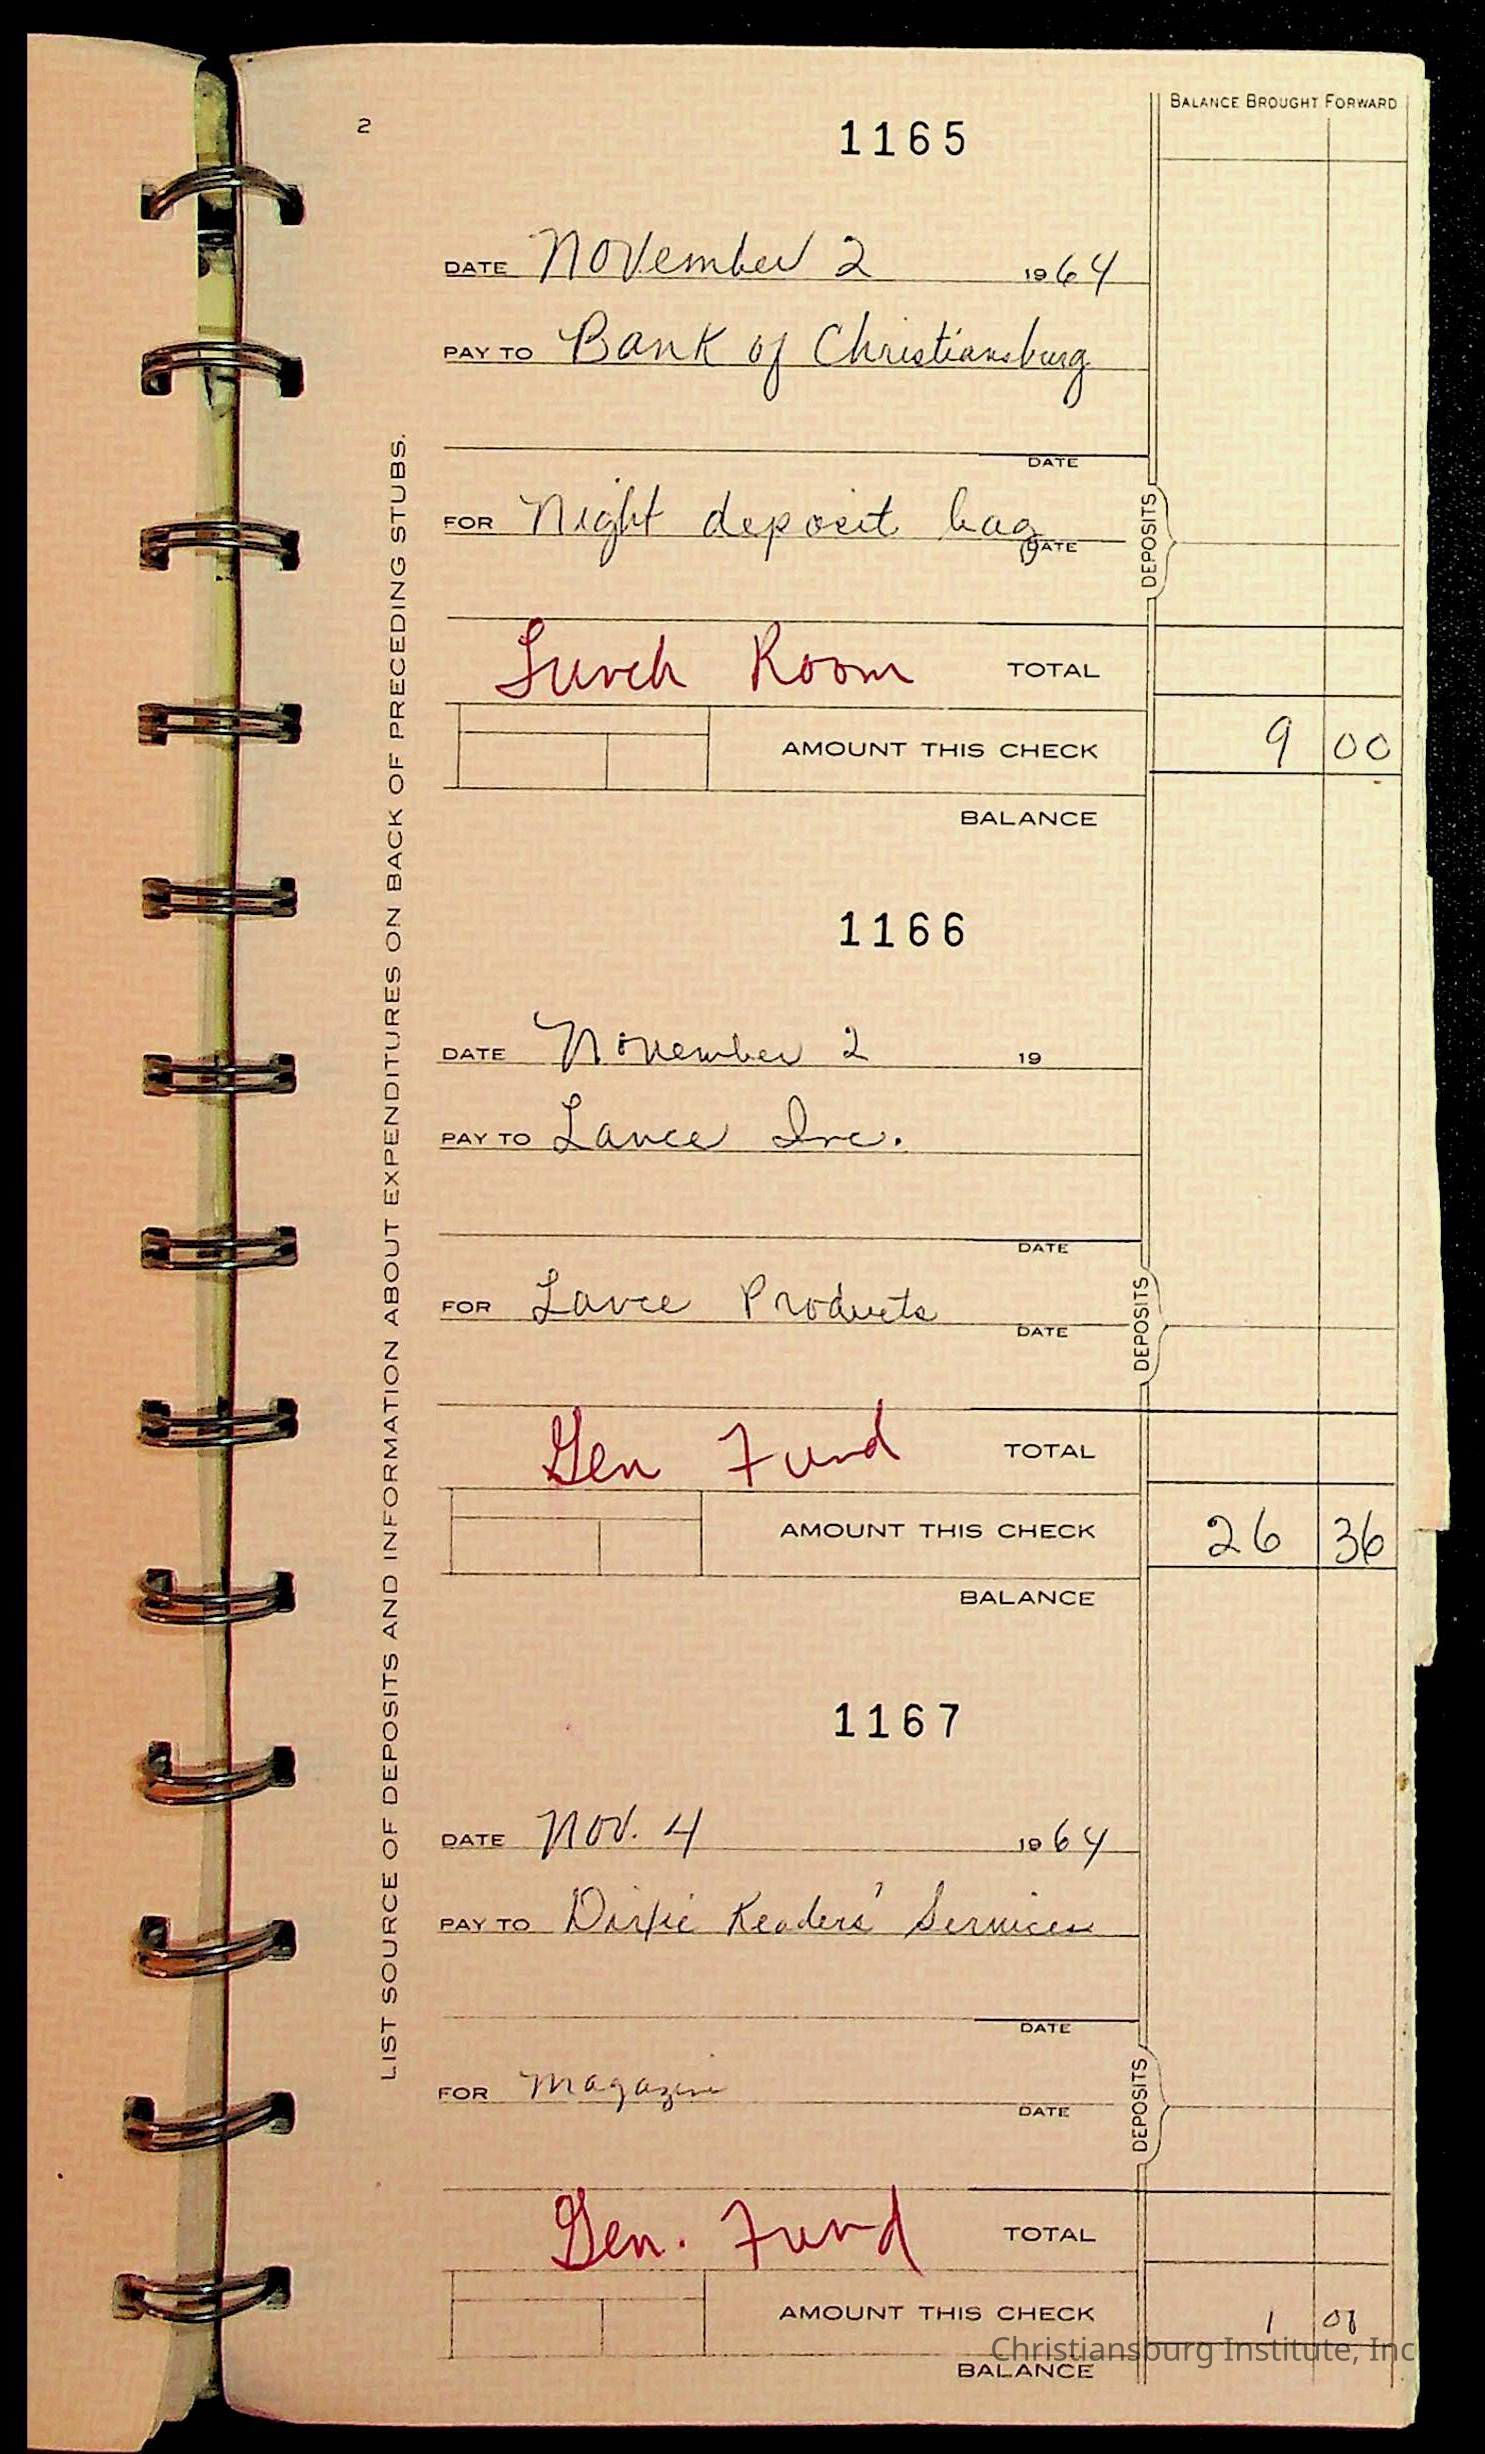 BALANCE BROUGHT FORWARD
2
1165
DATE November 2 1964
PAY TO Bank of Christiansburg
DATE
FOR Night deposit bag
DATE
DEPOSITS
Lunch Room TOTAL
AMOUNT THIS CHECK 9 00
BALANCE
LIST SOURCE OF DEPOSITS AND INFORMATION ABOUT EXPENDITURES ON BACK OF PRECEDING STUBS.
1166
DATE November 2 19
PAY TO Lance Inc.
DATE
FOR Lance Products
DATE
DEPOSITS
Gen Fund TOTAL
AMOUNT THIS CHECK 26 36
BALANCE
1167
DATE Nov. 4 1964
PAY TO Dixie Readers' Services
DATE
FOR Magazine
DATE
DEPOSITS
Gen. Fund TOTAL
AMOUNT THIS CHECK 1
Christiansburg Institute, Inc
BALANCE